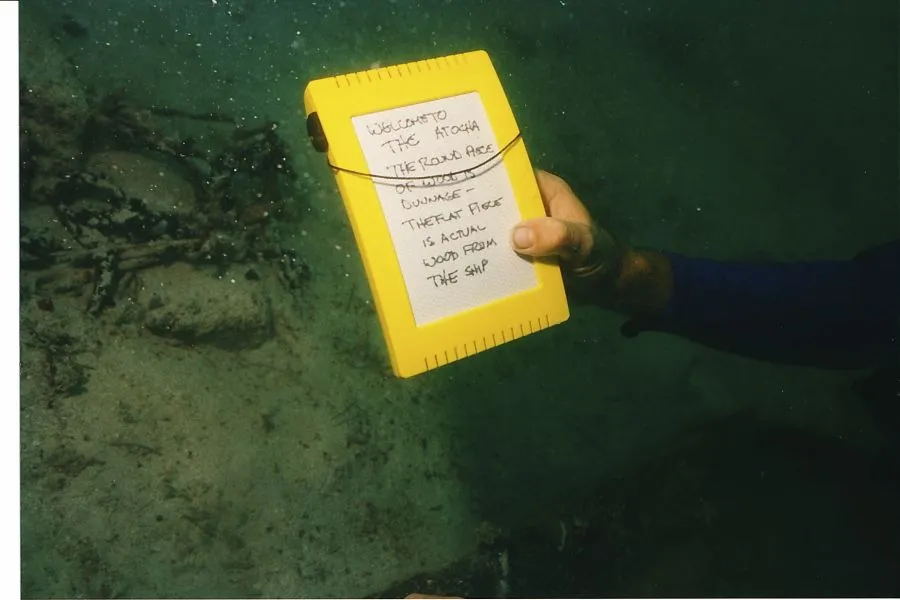 WELCOME TO
THE ATOCHA
THE ROUND PIECE
OF WOOD IS
DUNNAGE -
THE FLAT PIECE
IS ACTUAL
WOOD FROM
THE SHIP